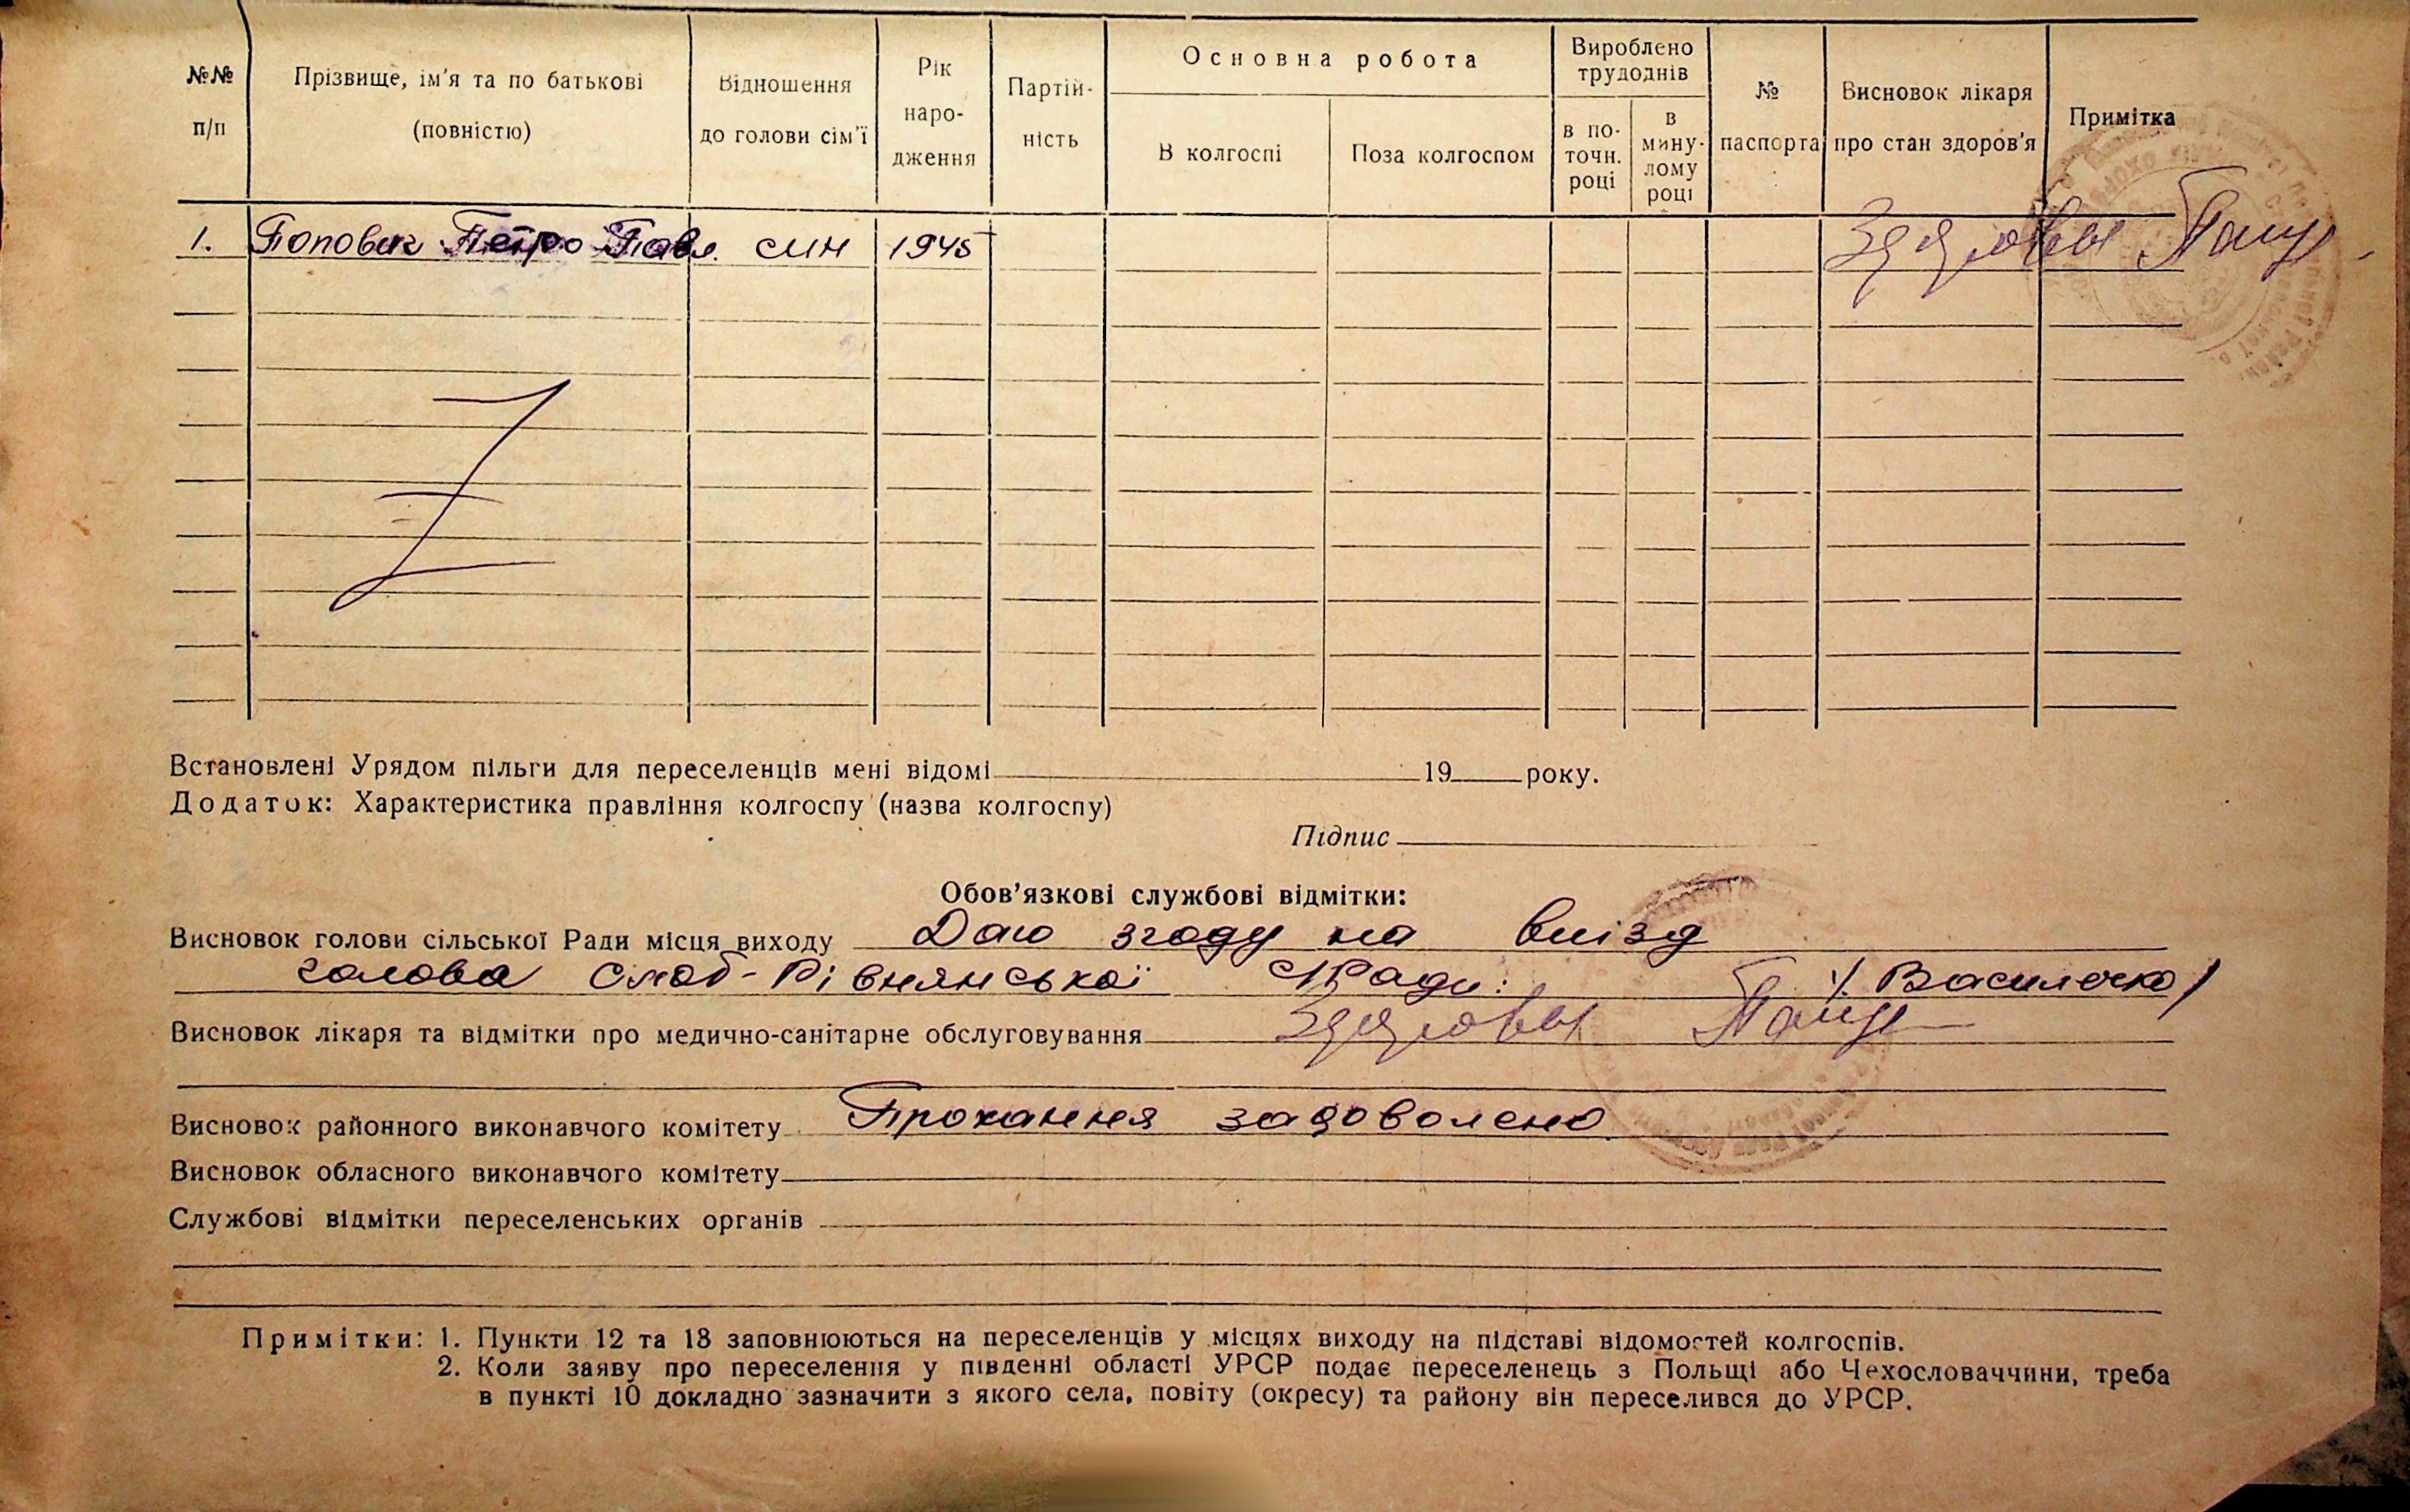 №№ п/п
Прізвище, ім'я та по батькові (повністю)
Відношення до голови сім'ї
Рік наро- дження
Партій- ність
Основна робота
В колгоспі
Поза колгоспом
Вироблено трудоднів
в по- точн. році
в мину- лому році
№ паспорта
Висновок лікаря про стан здоров'я
Примітка
1. Попович Петро Павл. син 1945 Здоровы
Встановлені Урядом пільги для переселенців мені відомі 19 року.
Додаток: Характеристика правління колгоспу (назва колгоспу)
Підпис
Обов'язкові службові відмітки:
Висновок голови сільської Ради місця виходу Даю згоду на виїзд
голова Слоб-Рівнянської с/Ради: /. Василечко/
Висновок лікаря та відмітки про медично-санітарне обслуговування Здоровы
Висновок районного виконавчого комітету Прохання задоволено
Висновок обласного виконавчого комітету
Службові відмітки переселенських органів
Примітки: 1. Пункти 12 та 18 заповнюються на переселенців у місцях виходу на підставі відомостей колгоспів.
2. Коли заяву про переселення у південні області УРСР подає переселенець з Польщі або Чехословаччини, треба
в пункті 10 докладно зазначити з якого села, повіту (окресу) та району він переселився до УРСР.